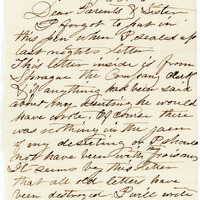 Dear Parents & Sister
I forgot to put in
this pen when I sealed up
last nights letter
This letter inside is from
Sprague the Company clerk
& if anything had been said
about my deserting he would
have wrote. Of course there
was nothing in the
of my deserting or I should
not have been with
It seems by this letter
that all old letters have
been destroyed I will write